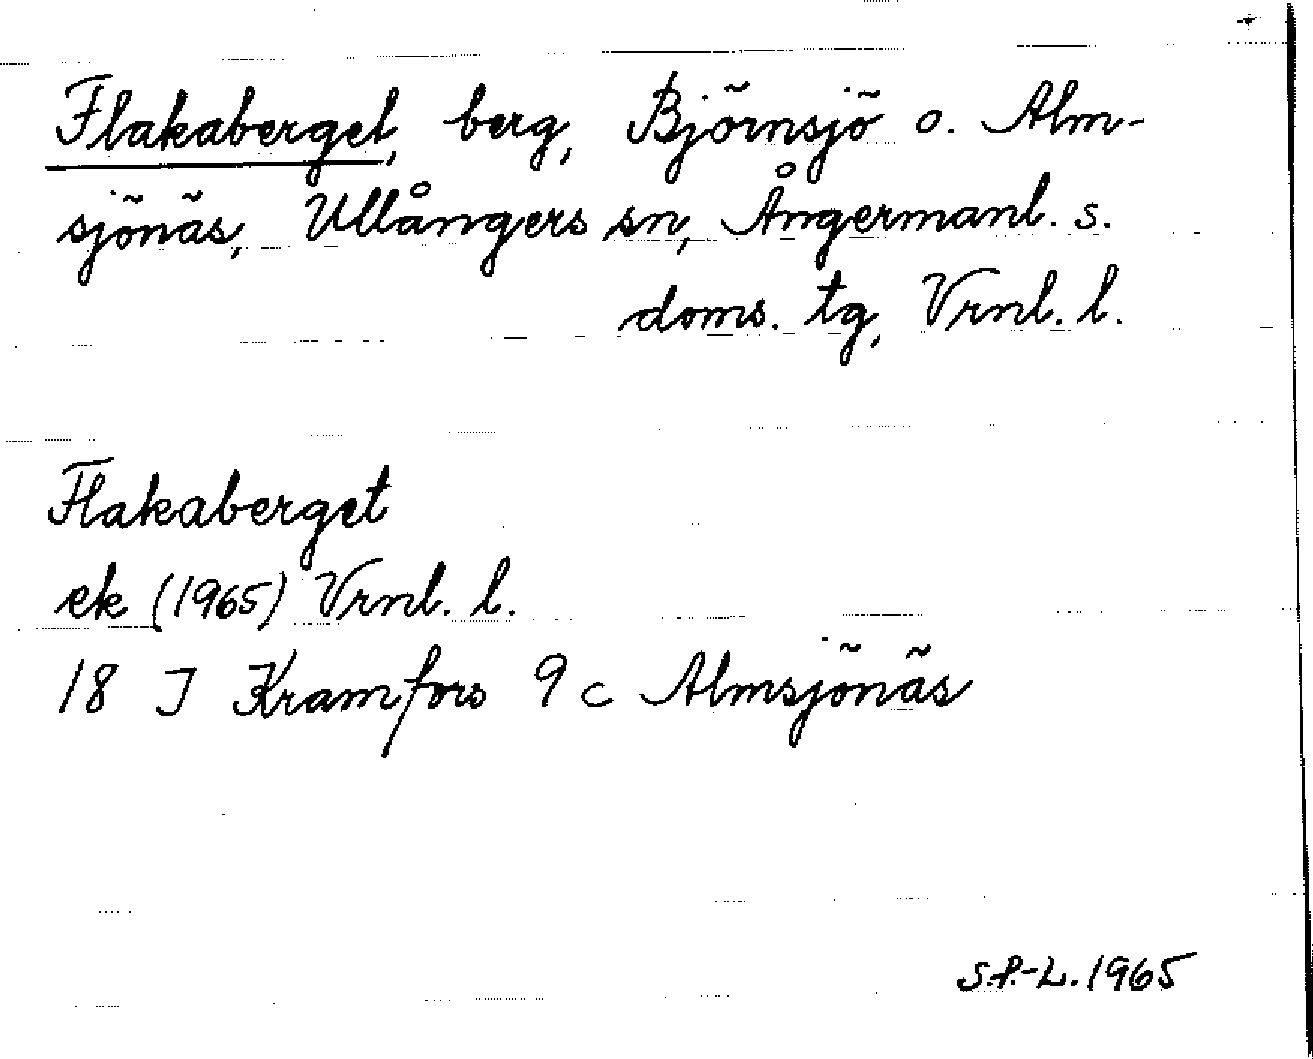 Flakaberget, berg, Björnsjö o. Alm-
sjönäs, Ullångers sn, Ångermanl. s.
doms. tg, Vrnl. l.
Flakaberget
ek (1965) Vrnl. l.
18 I Kramfors 9 c Almsjönäs
S.P.-L. 1965